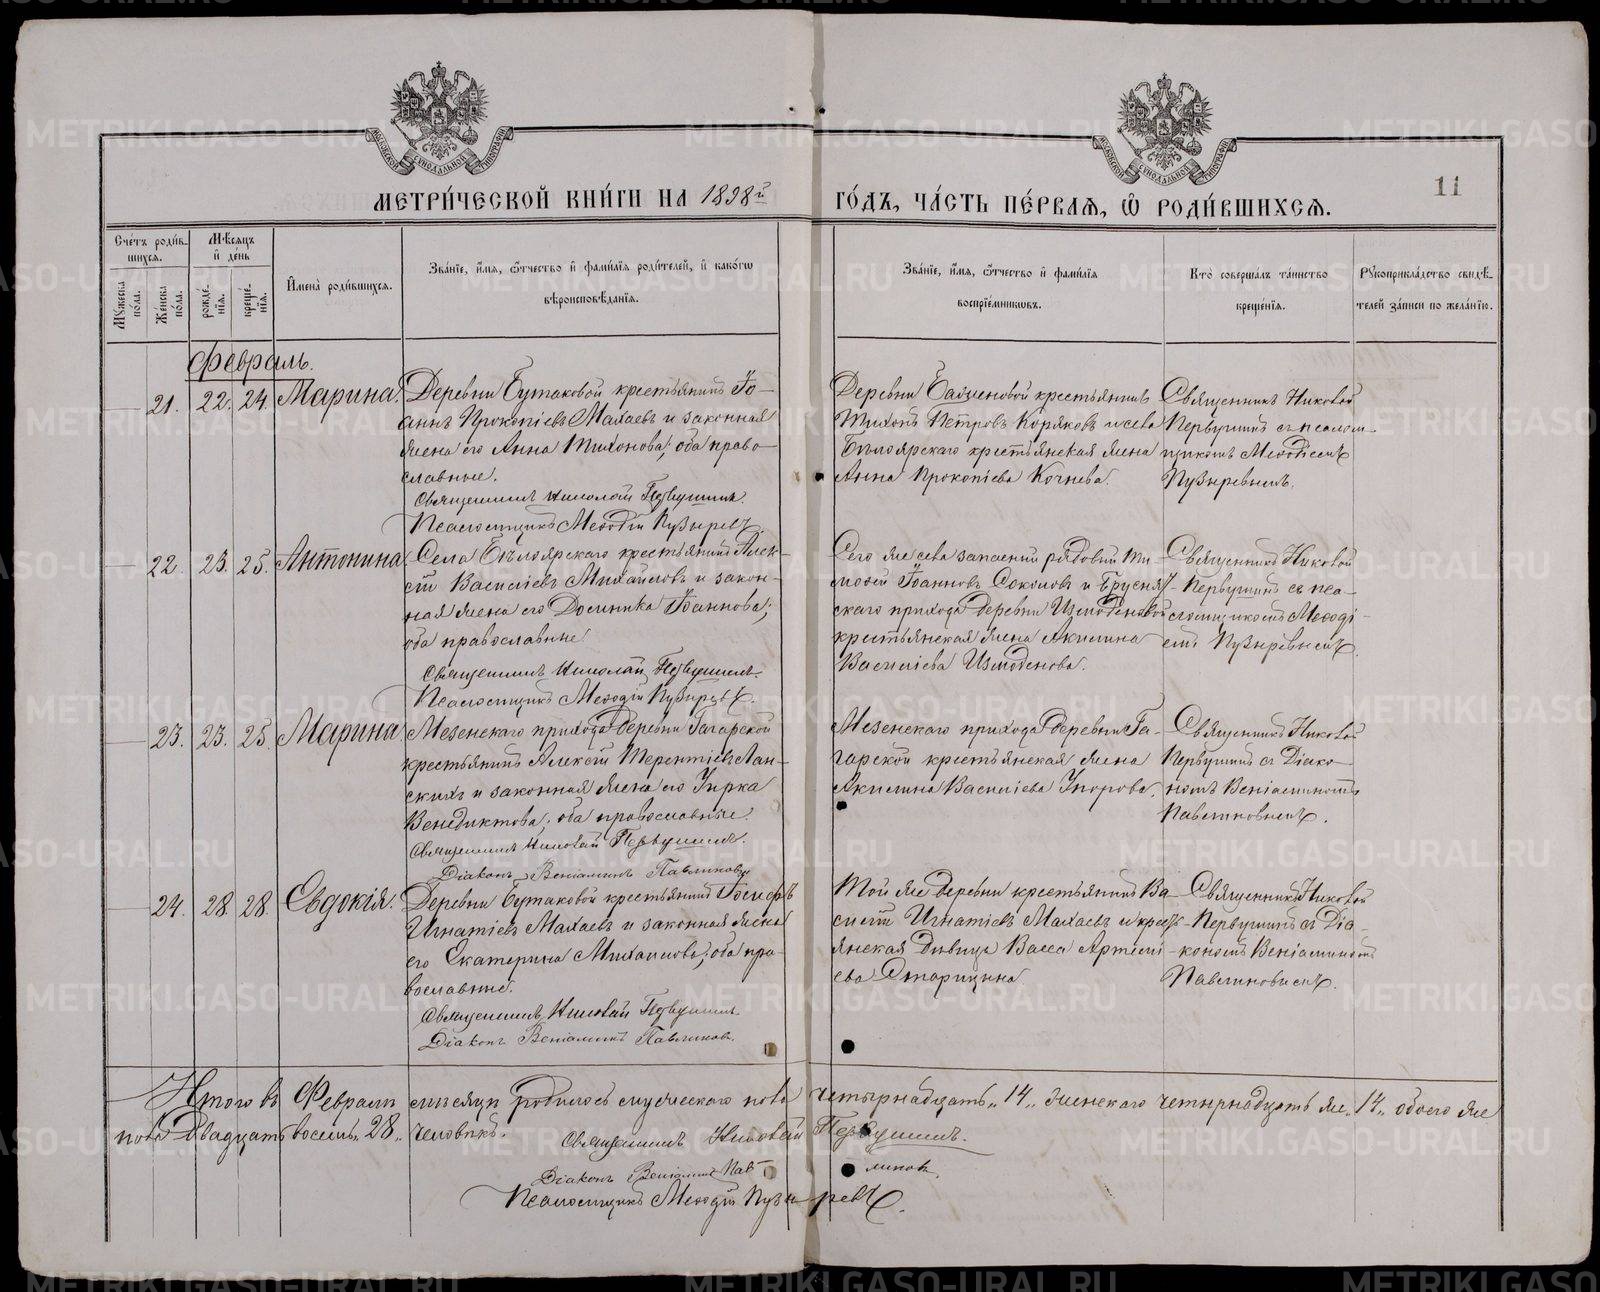 МЕТРИ́ЧЕСКОЙ КНИ́ГИ НА 1898й ГО́ДЪ, ЧА́СТЬ ПЕ́РВАЯ, Ѽ РОДИ́ВШИХСЯ.
11
Сче́тъ роди́в-
шихся.
Мѣ́сяцъ
и҆ де́нь
И҆мена̀ роди́вшихся.
Зва́нїе, и҆́мя, ѻ҆́тчество и҆ фами́лїя роди́телей, и҆ како́гѡ
вѣроисповѣ́данїя.
Зва́нїе, и҆́мя, ѻ҆́тчество и҆ фами́лїя
воспрїе́мниковъ.
Кто̀ соверша́лъ та́инство
креще́нїя.
Рꙋкоприкла́дство свидѣ́-
телей за́писи по жела́нїю.
Мꙋ́жеска
пола.
Же́нска
по́ла.
рожде́-
нїя.
креще́-
нїя.
Февраль.
21. 22. 24. Марина.
Деревни Бутаковой крестьянинъ Іо-
аннъ Прокопіевъ Махаевъ и законная
жена его Анна Тихонова; оба право-
славные.
Священникъ Николай Первушинъ.
Псаломщикъ Меѳодій Пузыревъ
Деревни крестьянинъ
Тихонъ Петровъ Коряковъ и села
Бѣлоярскаго крестьянская жена
Анна Прокопіева Кочнева.
Священникъ Николай
Первушинъ съ псалом-
щикомъ Меѳодіемъ
Пузыревымъ.
22. 23. 25. Антонина
Села Бѣлоярскаго крестьянинъ Алек-
сѣй Василіевъ Михайловъ и закон-
ная жена его Домника Іоаннова;
оба православные
Священникъ Николай Первушинъ.
Псаломщикъ Меѳодій Пузыревъ.
Сего же села запасный рядовый Ти-
моѳей Іоанновъ Соколовъ и Брусян-
скаго прихода деревни Измоденовой
крестьянская жена Акилина
Василіева Измоденова.
Священникъ Николай
Первушинъ съ пса-
ломщикомъ Меѳоді-
емъ Пузыревымъ.
23. 23. 25. Марина
Мезенскаго прихода деревни Гагарской
крестьянинъ Алексѣй Терентіевъ Лан-
скихъ и законная жена его
Венедиктова; оба православные.
Священникъ Николай Первушинъ.
Діаконъ Веніаминъ Павлиновъ
Мезенскаго прихода деревни Га-
гарской крестьянская жена
Акилина Василіева Упорова.
Священникъ Николай
Первушинъ съ Діако-
номъ Веніаминомъ
Павлиновымъ.
24. 28. 28. Евдокія.
Деревни Бутаковой крестьянинъ Іосифъ
Игнатіевъ Махаевъ и законная жена
его Екатерина Михаилова; оба пра-
вославные.
Священникъ Николай Первушинъ.
Діаконъ Веніаминъ Павлиновъ.
Той же деревни крестьянинъ Ва-
силій Игнатіевъ Махаевъ и крест-
янская дѣвица Васса Артемі-
ева Старицина.
Священникъ Николай
Первушинъ съ Діа-
кономъ Веніаминомъ
Павлиновымъ.
Итого въ Февралѣ мѣсяцѣ родилось мужескаго пола четырнадцать „14„ женскаго четырнадцать же „14„ обоего же
пола двадцать восемь „28„ человѣкъ.
Священникъ Николай Первушинъ.
Діаконъ Веніаминъ Павлиновъ
Псаломщикъ Меѳодій Пузыревъ.